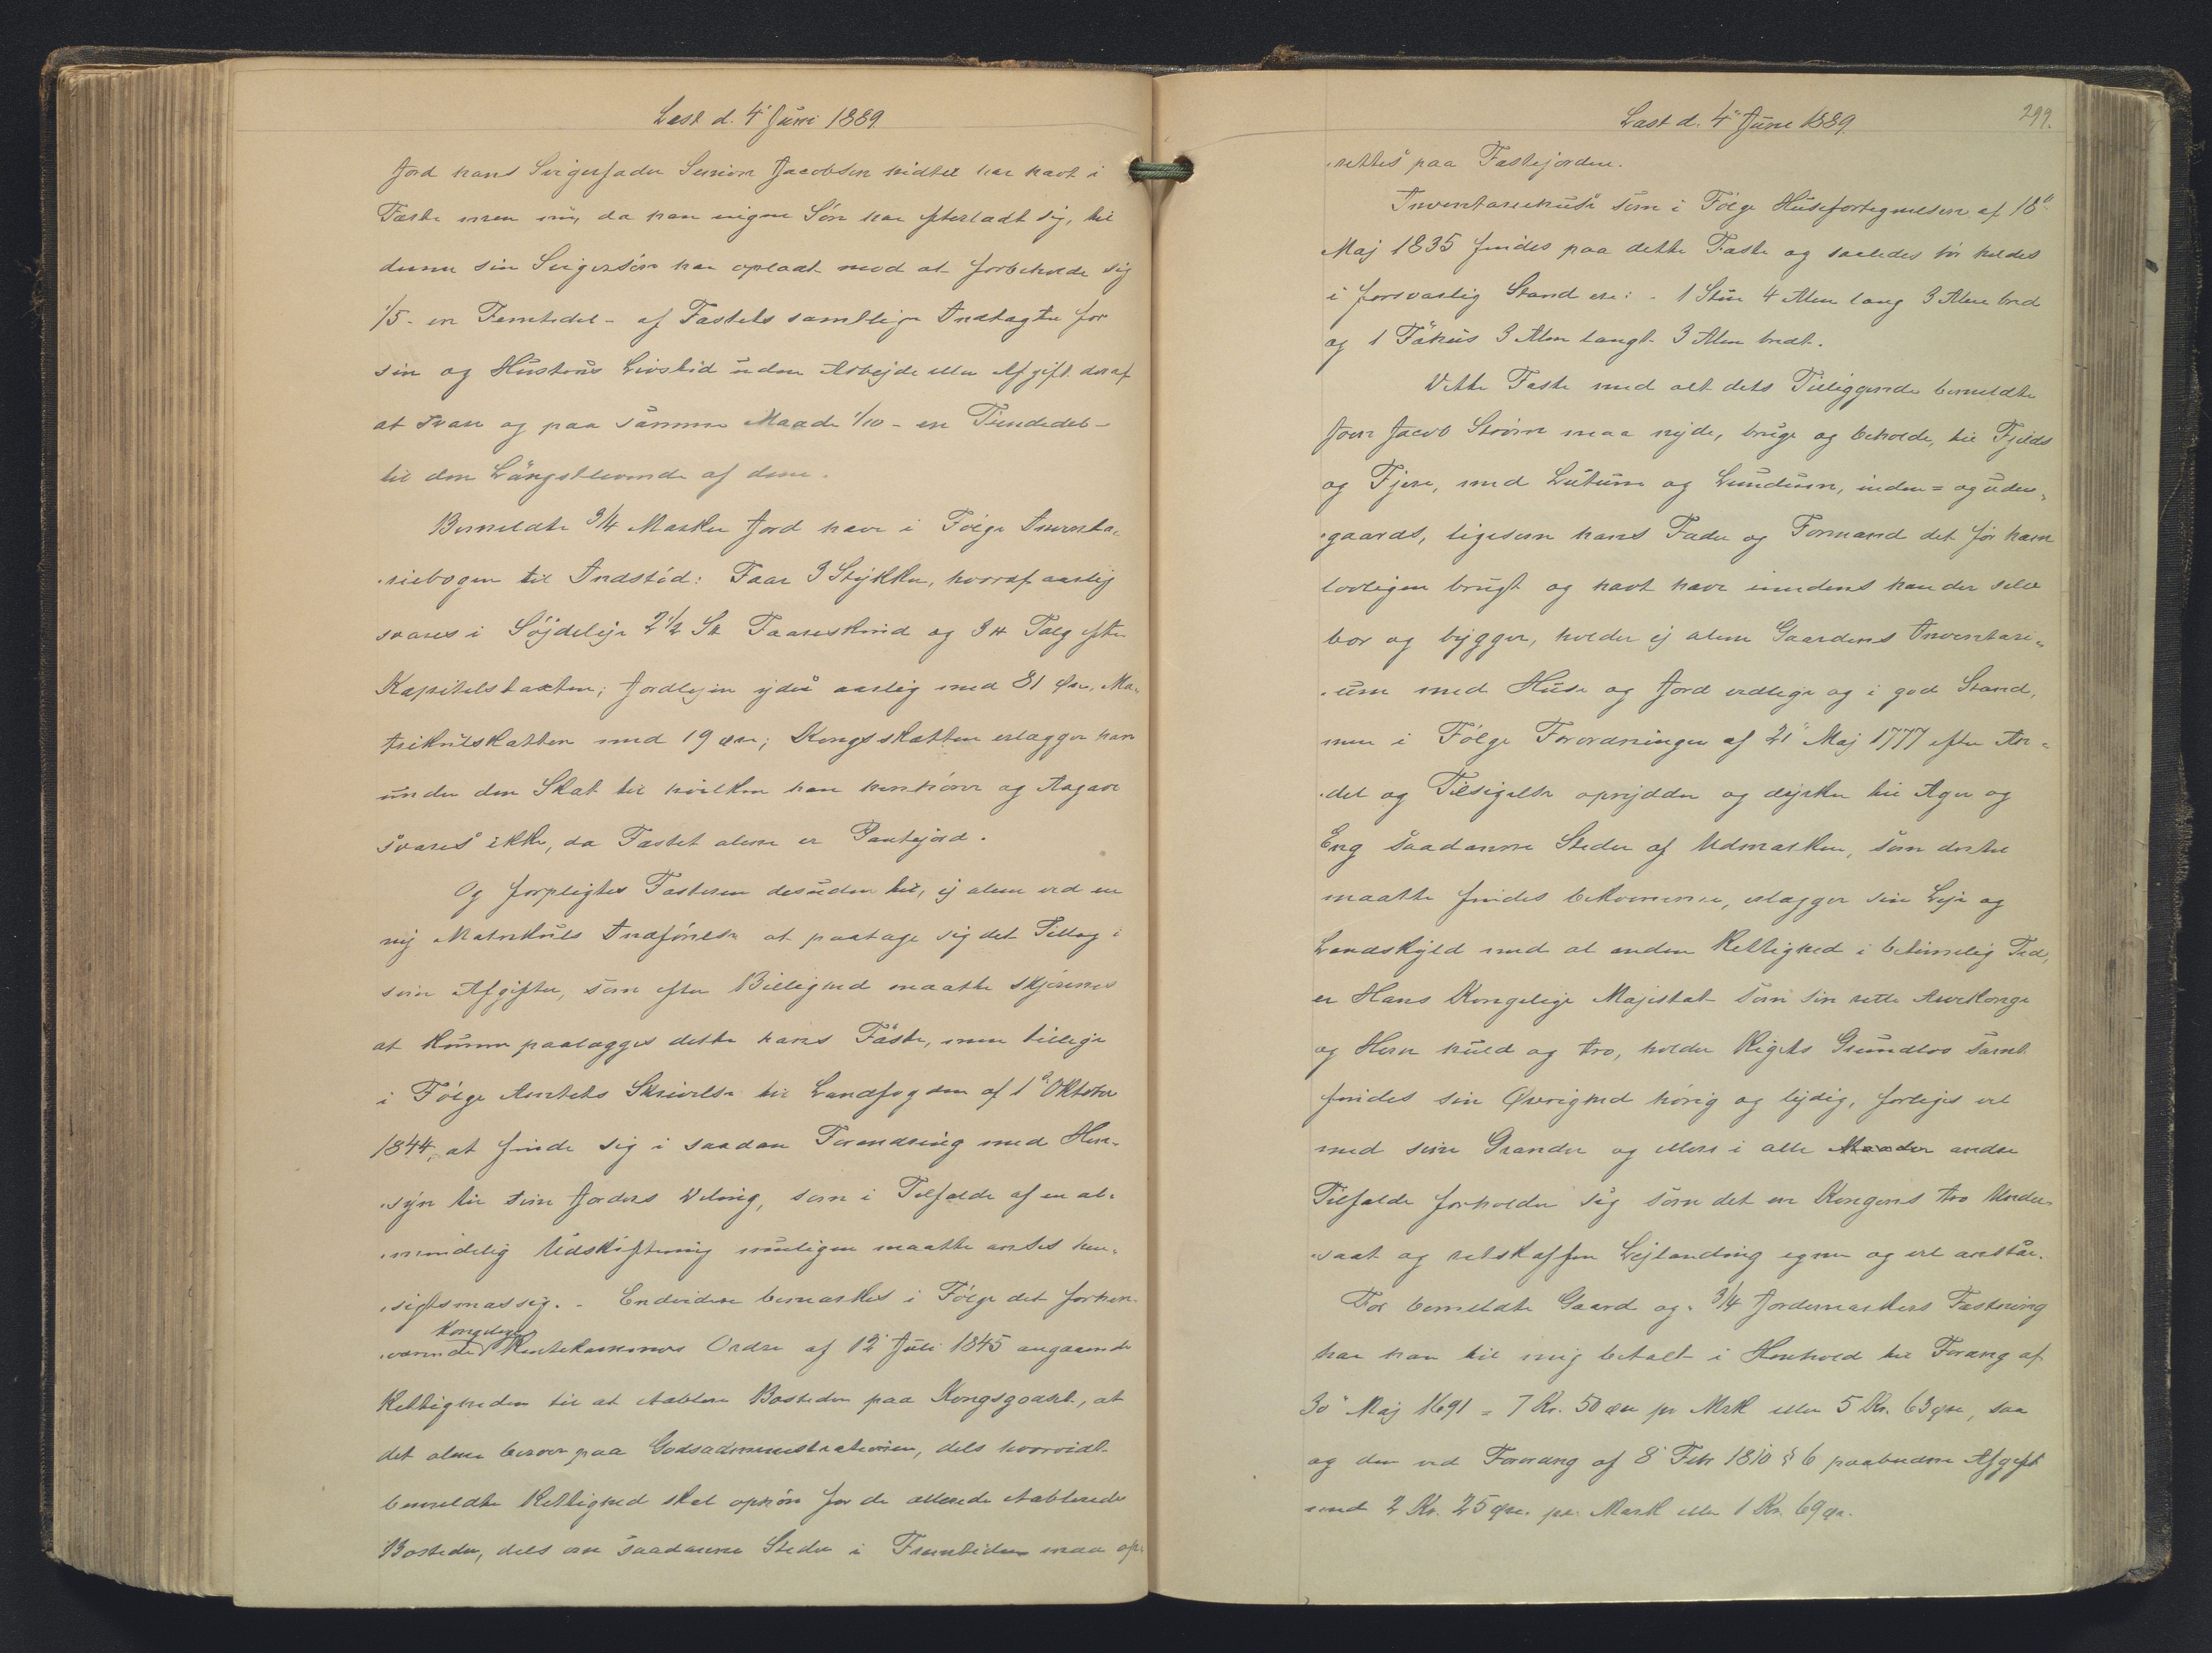 Læst d. 4' Juni 1889.
Jord hans Svigerfader Simon Jacobsen hidtil har havt i
Fæste men nu, da han ingen Søn har efterladt sig, til
denne sin Svigersøn har opladt mod at forbeholde sig
1/5 - en Femtedel - af Fæstets samtlige Indtægter for
sin og Hustrus Livstid uden Arbejde eller Afgift deraf
at svare og paa samme Maade 1/10 - en Tiendedel -
til den Længstlevende af dem.
Bemeldte 3/4 Marker Jord have i Følge Inventa-
riebogen til Indstød: Faar 3 Stykker, hvoraf aarlig
svares i Søjdeleje 2 1/2 St Faareskind og 3 ℔ Talg efter
Kapitelstaxten; Jordlejen ydes aarlig med 81 Øre, Ma-
trikulskatten med 19 Øre; Kongsskatten erlægger han
under den Skat til hvilken han henhører og Aagave
svares ikke, da Fæstet alene er Pantejord.
Og forpligtes Fæsteren desuden til, ej alene ved en
ny Matrikuls Indførelse at paatage sig det Tillæg i
sin Afgifter, som efter Billighed maatte skjønnes
at kunne paalægges dette hans Fæste, men tillige
i Følge Amtets Skrivelse til Landfogden af 1' Oktober
1844, at finde sig i saadan Forandring med Hen-
syn til sine Jorders Deling, som i Tilfælde af en al-
mindelig Udskiftning muligen maatte ansees hen-
sigtsmæssig. - Endvidere bemærkes i Følge det forhen-
Kongelige
værende Rentekammers Ordre af 12' Juli 1845 angaaende
Rettigheden til at etablere Bosteder paa Kongsgodset, at
det alene beroer paa Godsadministrationen, dels hvorvidt
bemeldte Rettighed skal ophøre for de allerede etablerede
Bosteder, dels om saadanne Steder i Fremtiden maa op-
Læst d. 4" Juni 1889.
299.
rettes paa Fæstejorden.
Inventariehuse som i Følge Husefortegnelsen af 18"
Maj 1835 findes paa dette Fæste og saaledes bør holdes
i forsvarlig Stand ere: - 1 Stue 4 Alen lang 3 Alen bred
og 1 Fähus 3 Alen langt 3 Alen bredt.
Dette Fæste med alt dets Tilliggende bemeldte
Joen Jacob Strøm maa nyde, bruge og beholde, til Fjelds
og Fjære, med Lutum og Lundum, inden= og uden-
gaards, ligesom hans Fader og Formand det før ham
lovligen brugt og havt have imedens han der selv
bor og bygger, holder ej alene Gaardens Inventari-
um med Huse og Jord vedlige og i god Stand,
men i Følge Forordningen af 21" Maj 1777 efter An-
del og Tilsigelse oprydder og dyrker til Ager og
Eng saadanne Steder af Udmarken, som dertil
maatte findes bekvemme, erlægger sin Leje og
Landskyld med al anden Rettighed i betimelig Tid,
er Hans Kongelige Majestæt som sin rette Arvekonge
og Herre huld og tro, holder Rigets Grundlov samt
findes sin Øvrighed hørig og lydig, forliges vel
med sine Grander og ellers i alle Maader andre
Tilfælde forholder sig som det en Kongens tro Under-
saat og retskaffen Lejlending egner og vel anstår.
For bemeldte Gaard og 3/4 Jordemarkers Fæstning
har han til mig betalt i Henhold til Forordng af
30" Maj 1691 = 7 Kr. 50 Øre pr Mrk eller 5 Kr. 63 Øre, saa
og den ved Forordng af 8' Febr 1810 § 6 paabudne Afgift
med 2 Kr. 25 Øre. pr. Mark eller 1 Kr. 69 Ør.